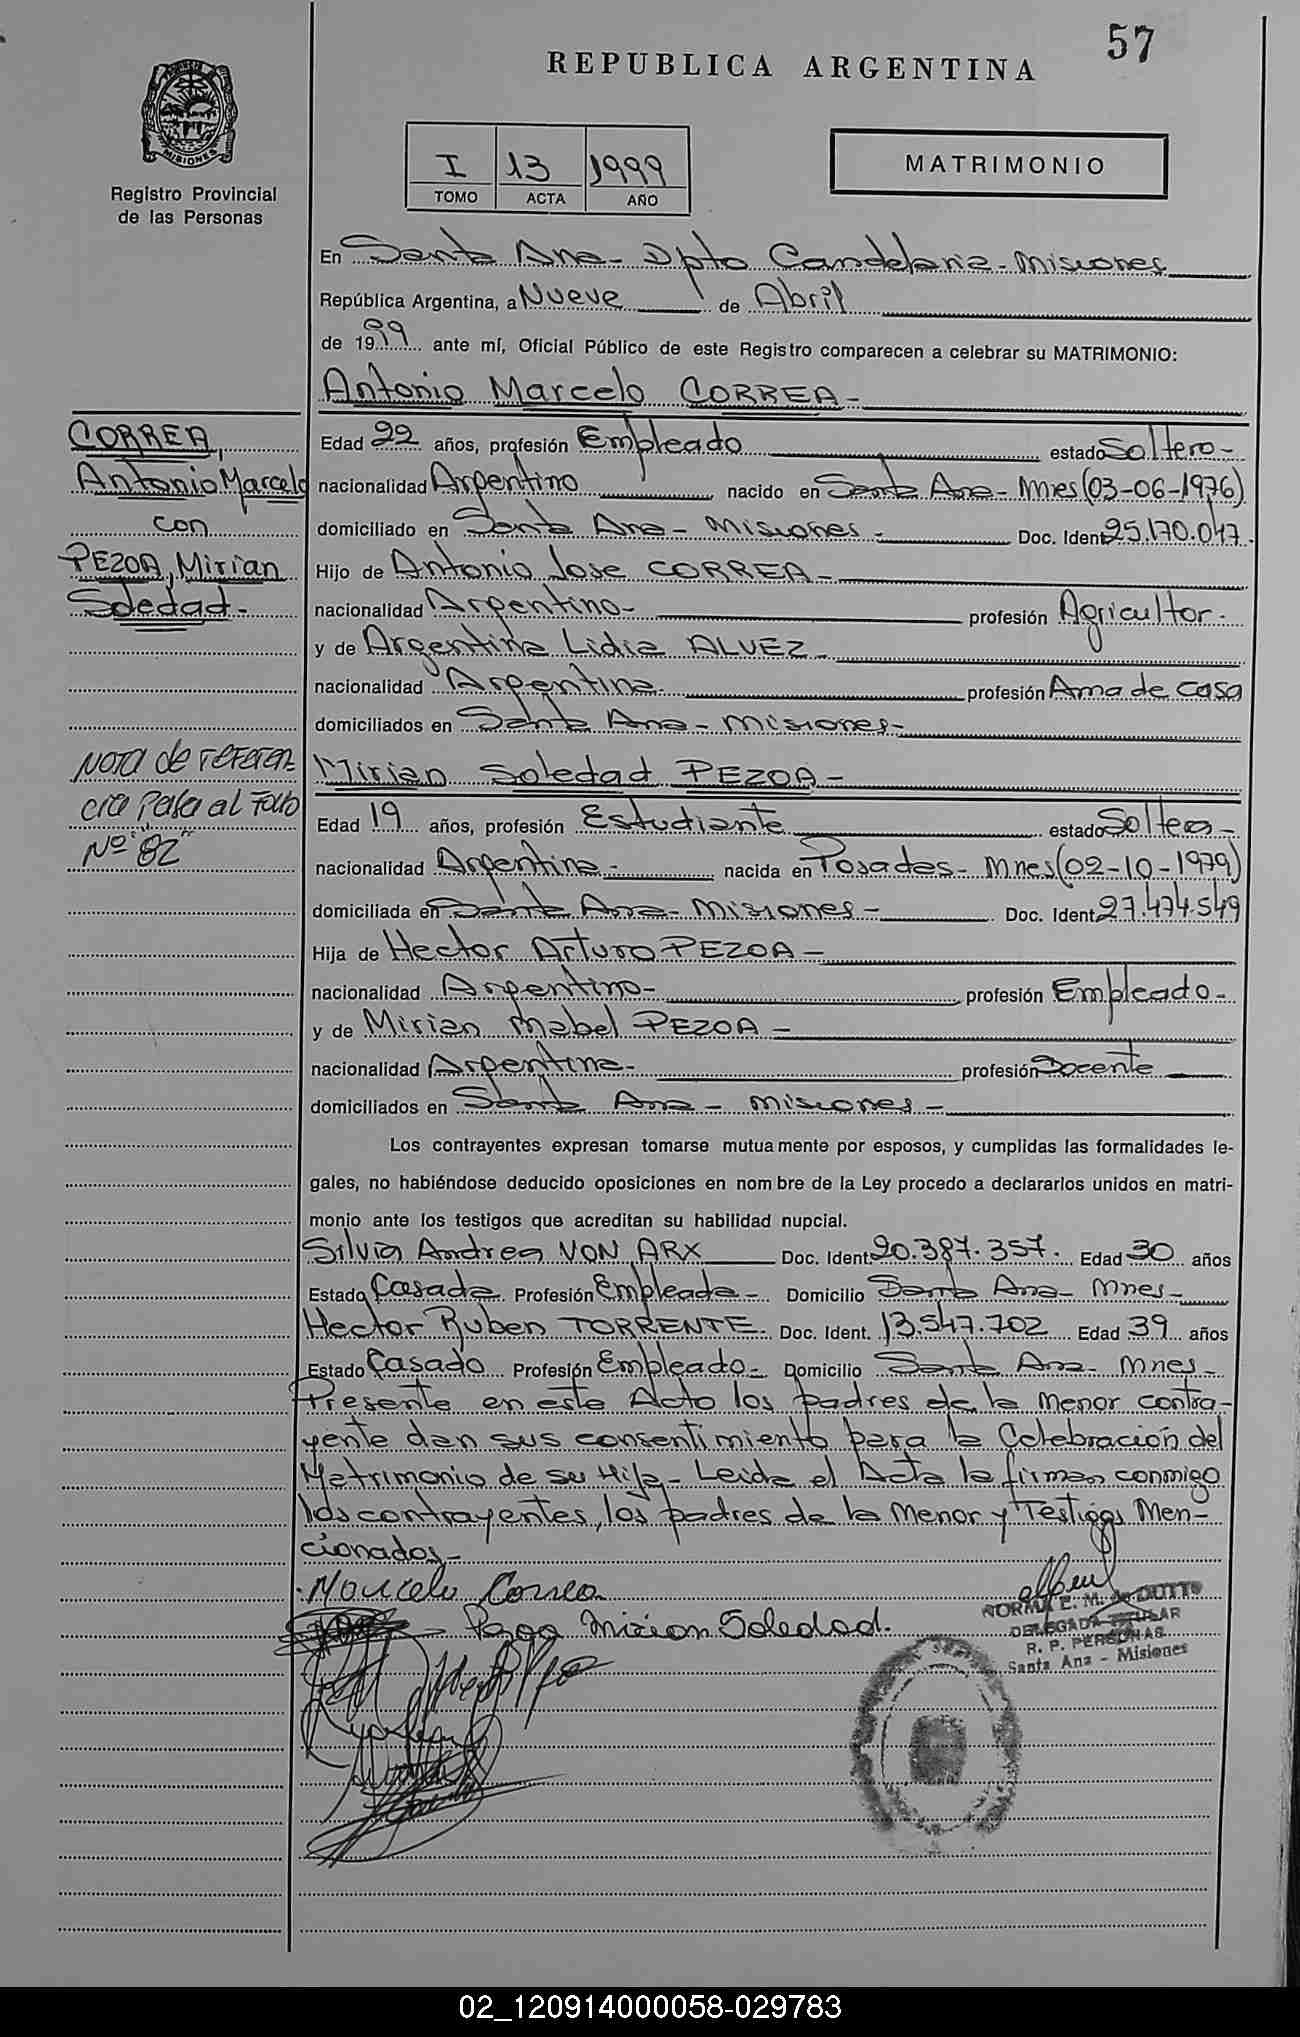 57
REPUBLICA ARGENTINA
PROVINCIA DE
MISIONES
Registro Provincial
de las Personas
I 13 1999
TOMO ACTA AÑO
MATRIMONIO
En Santa Ana- Dpto Candelaria- Misiones
República Argentina, a Nueve de Abril
de 1999 ante mí, Oficial Público de este Registro comparecen a celebrar su MATRIMONIO:
Antonio Marcelo CORREA-
CORREA,
Antonio Marcelo
con
PEZOA, Mirian
Soledad.-
Edad 22 años, profesión Empleado estado Soltero-
nacionalidad Argentino nacido en Santa Ana- Mnes (03-06-1976)
domiciliado en Santa Ana- Misiones- Doc. Ident 25.170.047.
Hijo de Antonio Jose CORREA-
nacionalidad Argentino- profesión Agricultor.
y de Argentina Lidia ALVEZ-
nacionalidad Argentina. profesión Ama de casa
domiciliados en Santa Ana- Misiones-
Nota de referen-
cia pasa al Folio
Nº "82"
Mirian Soledad PEZOA-
Edad 19 años, profesión Estudiante estado Soltera-
nacionalidad Argentina- nacida en Posadas- Mnes (02-10-1979)
domiciliada en Santa Ana- Misiones- Doc. Ident. 27.474.549
Hija de Hector Arturo PEZOA-
nacionalidad Argentino- profesión Empleado-
y de Mirian Mabel PEZOA-
nacionalidad Argentina- profesión Docente
domiciliados en Santa Ana- Misiones-
Los contrayentes expresan tomarse mutuamente por esposos, y cumplidas las formalidades le-
gales, no habiéndose deducido oposiciones en nombre de la Ley procedo a declararlos unidos en matri-
monio ante los testigos que acreditan su habilidad nupcial.
Silvia Andrea VON ARX Doc. Ident. 20.387.357. Edad 30 años
Estado Casada Profesión Empleada- Domicilio Santa Ana- Mnes-
Hector Ruben TORRENTE. Doc. Ident. 13.547.702 Edad 39 años
Estado Casado Profesión Empleado- Domicilio Santa Ana- Mnes-
Presente en este Acto los padres de la Menor contra-
yente dan sus consentimiento para la Celebración del
Matrimonio de su Hija- Leida el Acta la firman conmigo
los contrayentes, los padres de la Menor y Testigos Men-
cionados-
Marcelo Correa
Pezoa Mirian Soledad.
NORMA E. M. de DUTTO
DELEGADA TITULAR
R. P. PERSONAS
Santa Ana - Misiones
02_120914000058-029783